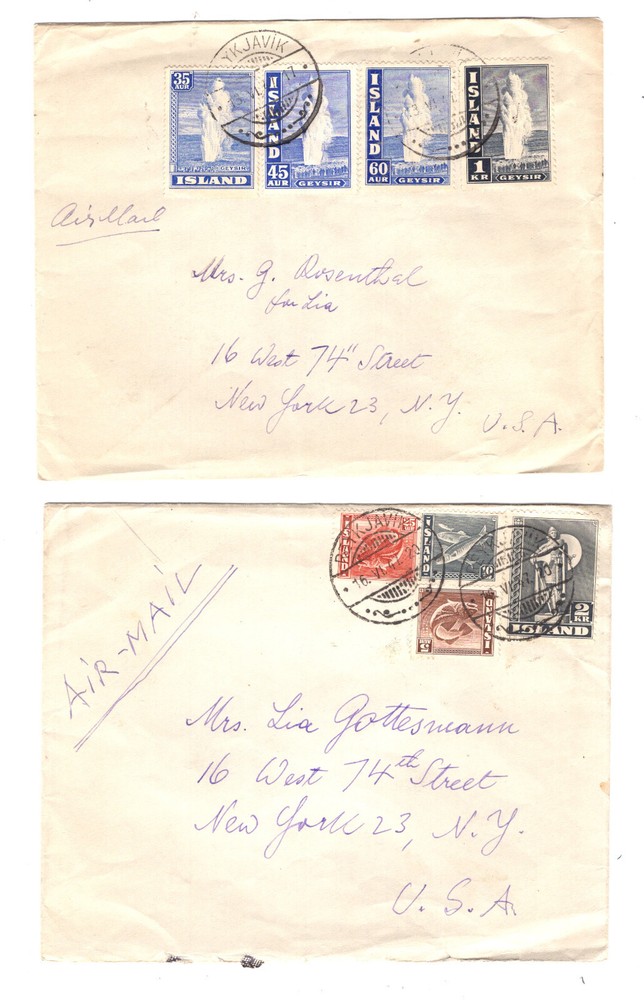 REYKJAVÍK
35
AUR
ISLAND
ISLAND
45
AUR
GEYSIR
ISLAND
60
AUR
GEYSIR
ISLAND
1
KR
GEYSIR
Air Mail
Mrs. G. Rosenthal
for Lia
16 West 74" Street
New York 23, N.Y.
U.S.A.
REYKJAVÍK
16. VI
25
ISLAND
ISLAND
10
2
KR
ISLAND
5
AUR
ISLAND
AIR-MAIL
Mrs. Lia Gottesmann
16 West 74th Street
New York 23, N.Y.
U.S.A.